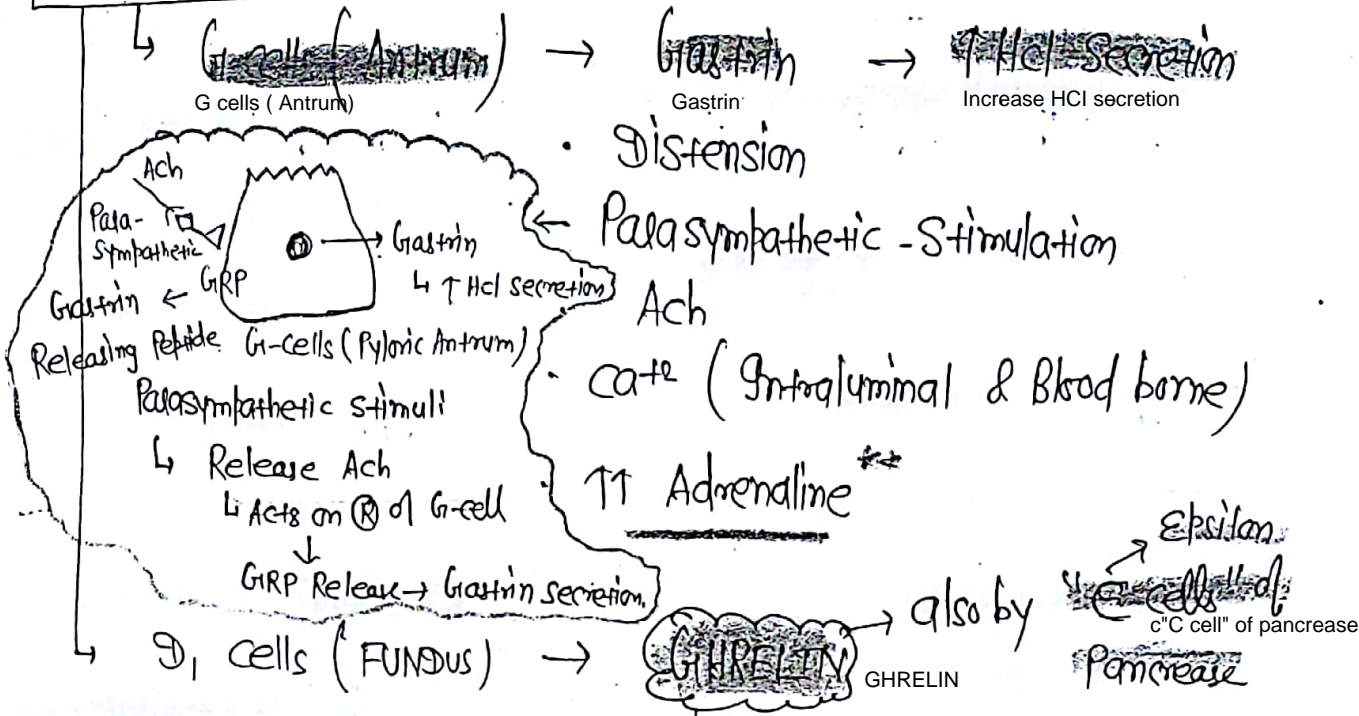 ↳ G cells (Antrum) → Gastrin → ↑ Hcl Secretion
G cells ( Antrum) Gastrin Increase HCl secretion
• Distension
← Parasympathetic - Stimulation
Ach
• Ca+2 (Intraluminal & Blood borne)
↑↑ Adrenaline **
Ach
Para-
Sympathetic
GRP
→ Gastrin
↳ ↑ Hcl secretion
Gastrin ←
Releasing Peptide G-cells (Pyloric Antrum)
Parasympathetic stimuli
↳ Release Ach
↳ Acts on Ⓡ of G-cell
↓
GRP Release → Gastrin secretion.
↳ D1 cells (FUNDUS) → GHRELIN → also by "Є cells" of
→ Epsilon
Pancrease
GHRELIN
c"C cell" of pancrease